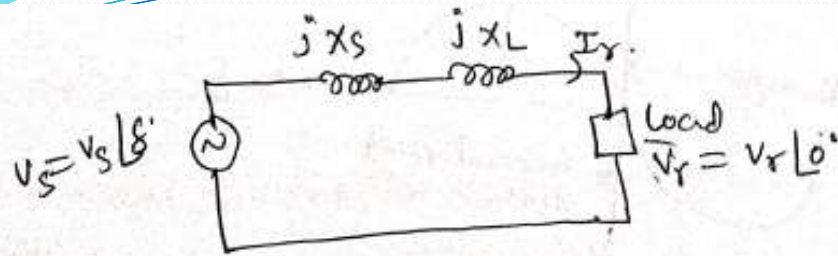 jXS jXL Ir.
VS = VS∠δ
Load
V̅r = Vr∠0°